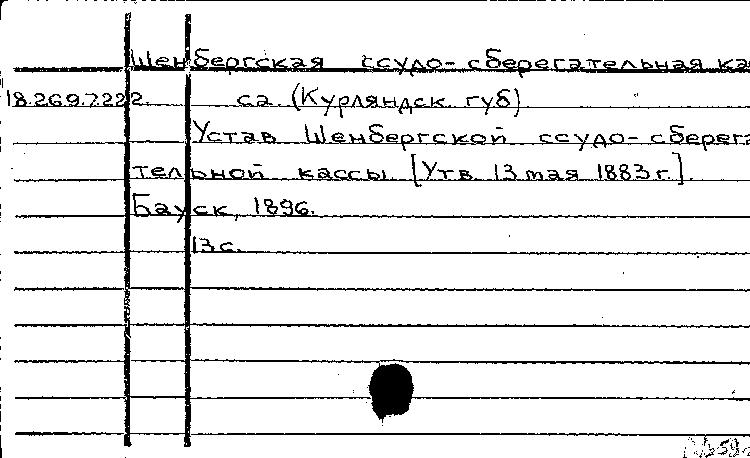 Шенбергская ссудо-сберегательная ка
18.269.7.222. са (Курляндск. губ)
Устав Шенбергской ссудо-сберега
тельной кассы [Утв. 13 мая 1883 г.].
Бауск, 1896.
13 с.